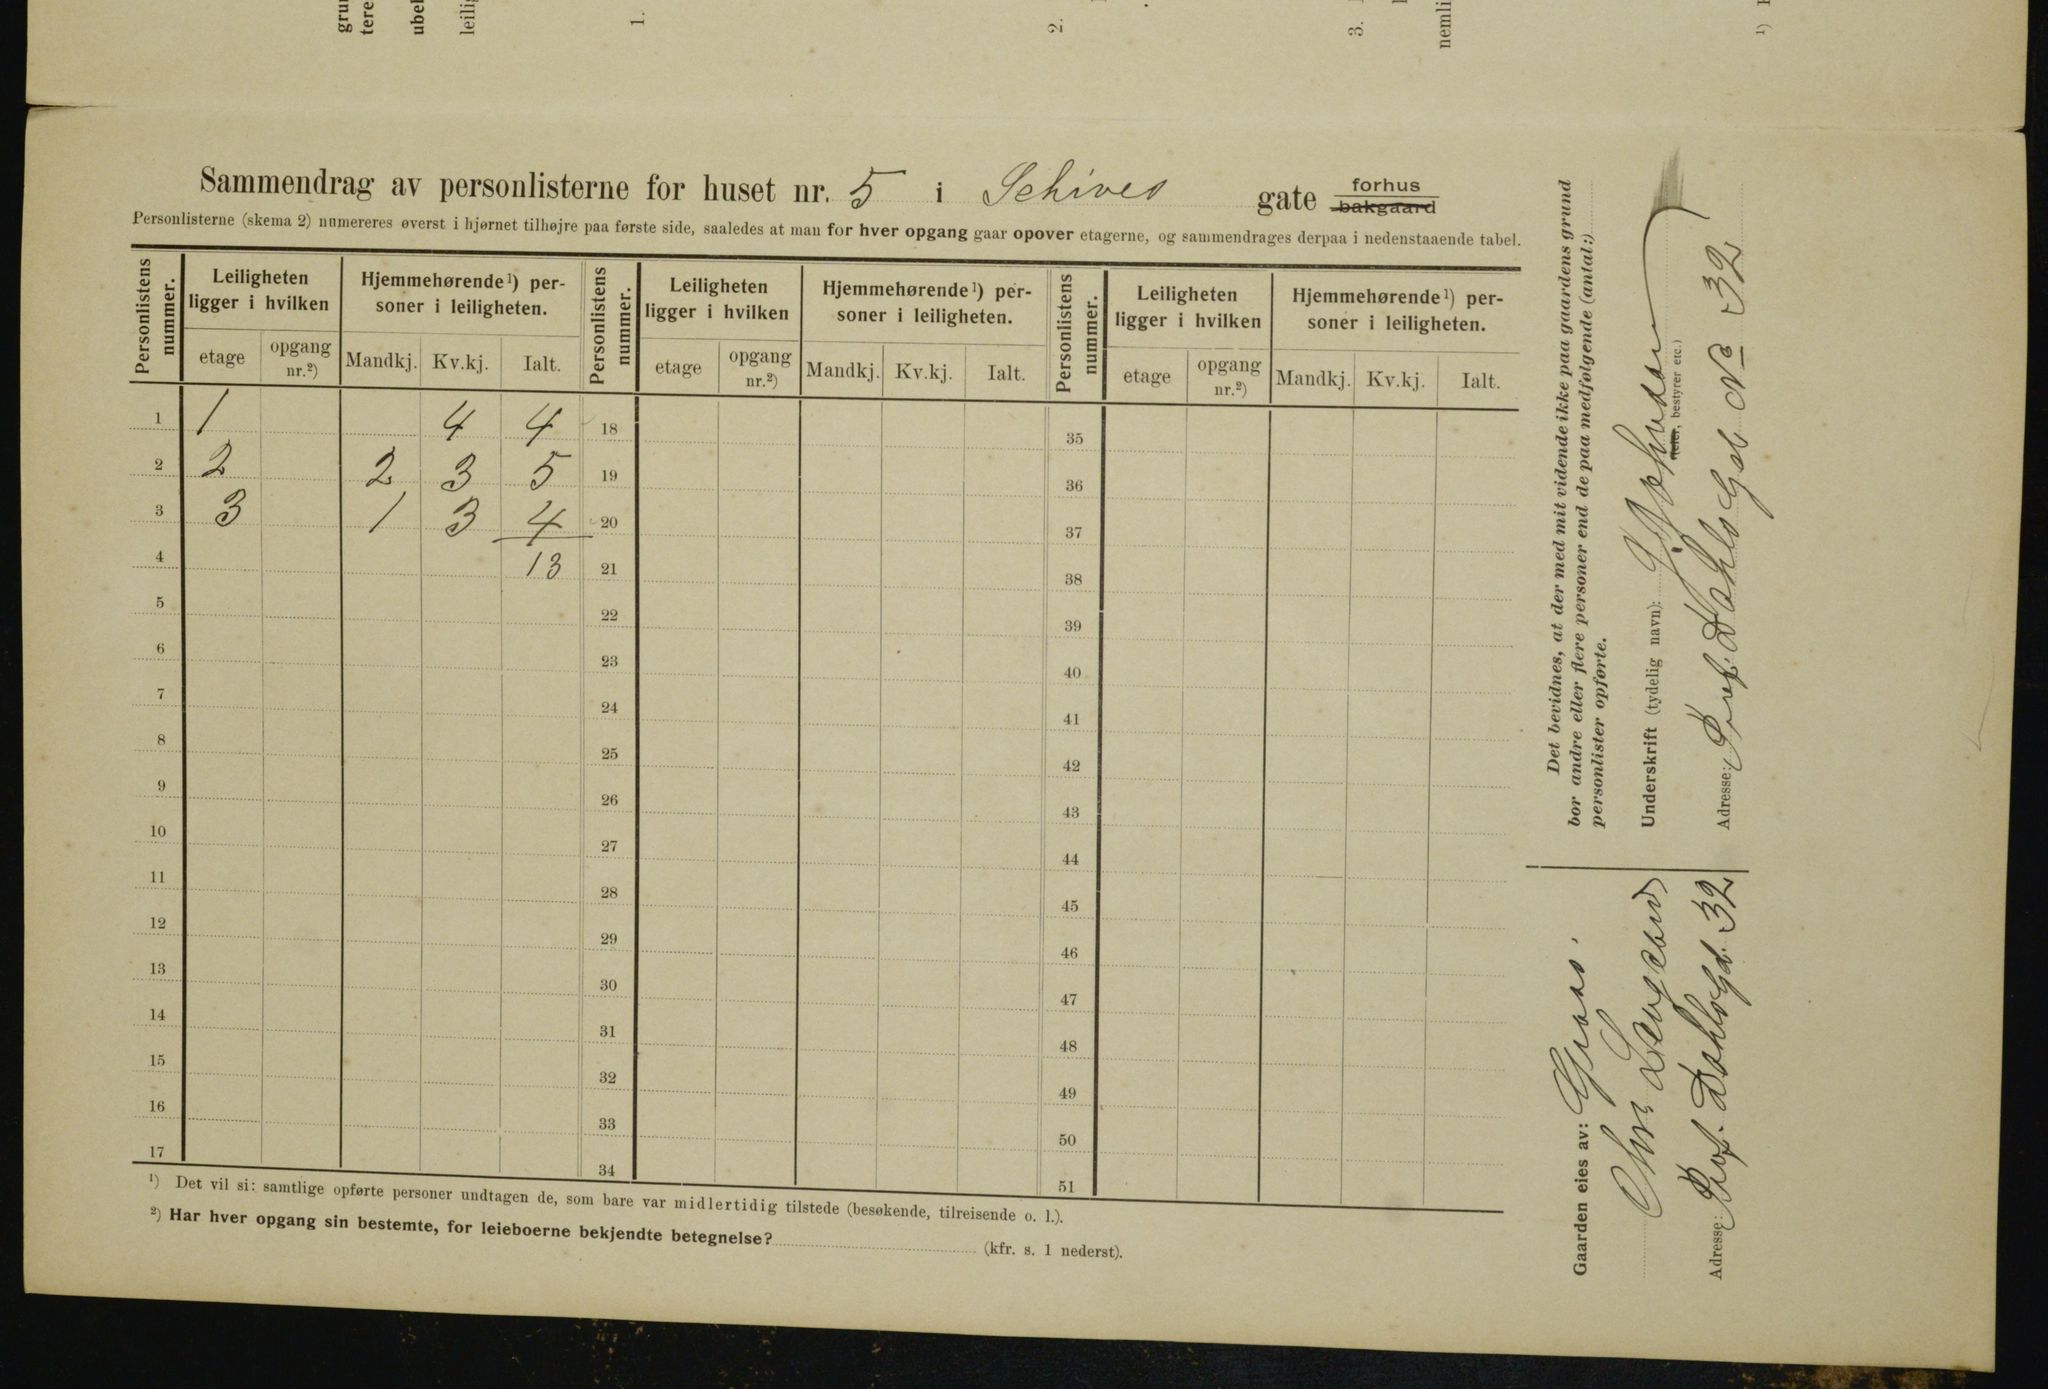 grun
tere
ubel
leilig
1.
2.
3.
nemli
¹)
Sammendrag av personlisterne for huset nr. 5 i Schives gate forhus bakgaard
Personlisterne (skema 2) numereres øverst i hjørnet tilhøjre paa første side, saaledes at man for hver opgang gaar opover etagerne, og sammendrages derpaa i nedenstaaende tabel.
Personlistens nummer. | Leiligheten ligger i hvilken | Hjemmehørende¹) personer i leiligheten. | Personlistens nummer. | Leiligheten ligger i hvilken | Hjemmehørende¹) personer i leiligheten. | Personlistens nummer. | Leiligheten ligger i hvilken | Hjemmehørende¹) personer i leiligheten.
etage | opgang nr.²) | Mandkj. | Kv.kj. | Ialt. | etage | opgang nr.²) | Mandkj. | Kv.kj. | Ialt. | etage | opgang nr.²) | Mandkj. | Kv.kj. | Ialt.
1 1 4 4 18 35
2 2 2 3 5 19 36
3 3 1 3 4 20 37
4 13 21 38
5 22 39
6 23 40
7 24 41
8 25 42
9 26 43
10 27 44
11 28 45
12 29 46
13 30 47
14 31 48
15 32 49
16 33 50
17 34 51
¹) Det vil si: samtlige opførte personer undtagen de, som bare var midlertidig tilstede (besøkende, tilreisende o. l.).
²) Har hver opgang sin bestemte, for leieboerne bekjendte betegnelse? (kfr. s. 1 nederst).
Det bevidnes, at der med mit vidende ikke paa gaardens grund
bor andre eller flere personer end de paa medfølgende (antal:)
personlister opførte.
Underskrift (tydelig navn):
eier, bestyrer etc.)
Adresse: Prof. Dahls Gt No 32
Gaarden eies av:
Langaard
Adresse: Prof. Dahlsgt. 32